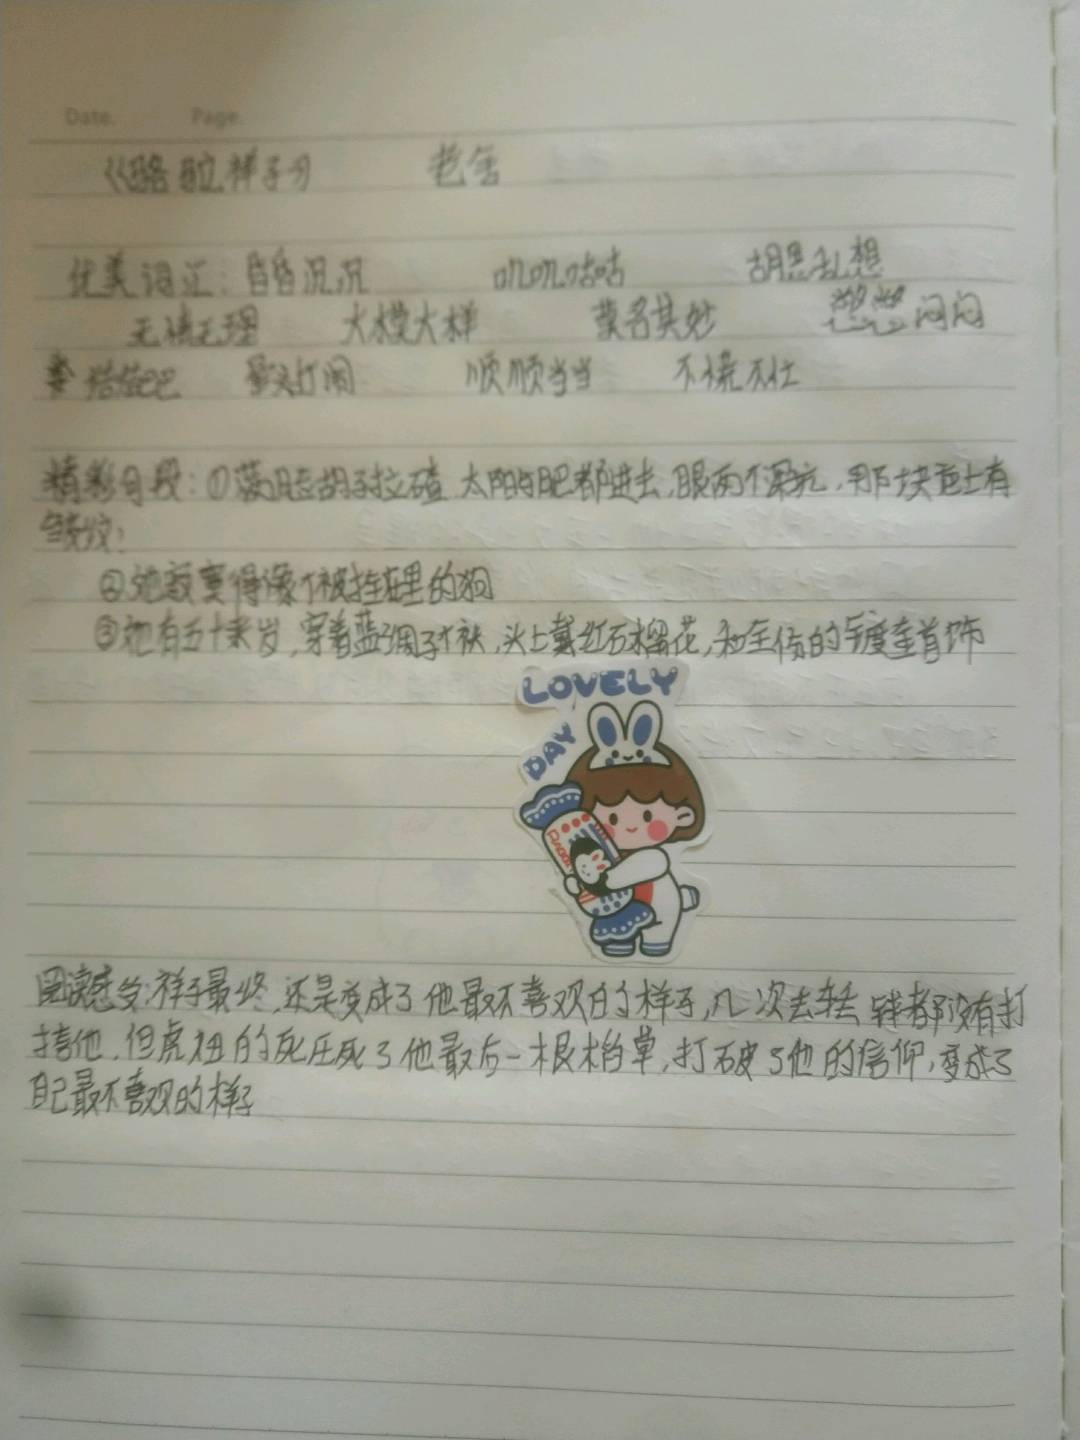 Date. Page.
《骆驼祥子》 老舍
优美词汇：昏昏沉沉 叽叽咕咕 胡思乱想
无缘无理 大模大样 莫名其妙 憋憋闷闷
结结巴巴 顺顺当当 不慌不忙
精彩片段：①满脸胡子拉碴 太阳与腮都进去，眼两个深坑，那块疤上有
皱纹！
②她寂寞得像个被拴在里的狗
③她有五十来岁，穿着蓝绸子袄，头上戴红石榴花，和全份的镀金首饰
LOVELY
DAY
阅读感受：祥子最终，还是变成了他最不喜欢的样子，几次丢车丢钱都没有打
击他，但虎妞的死压死了他最后一根稻草，打破了他的信仰，变成了
自己最不喜欢的样子